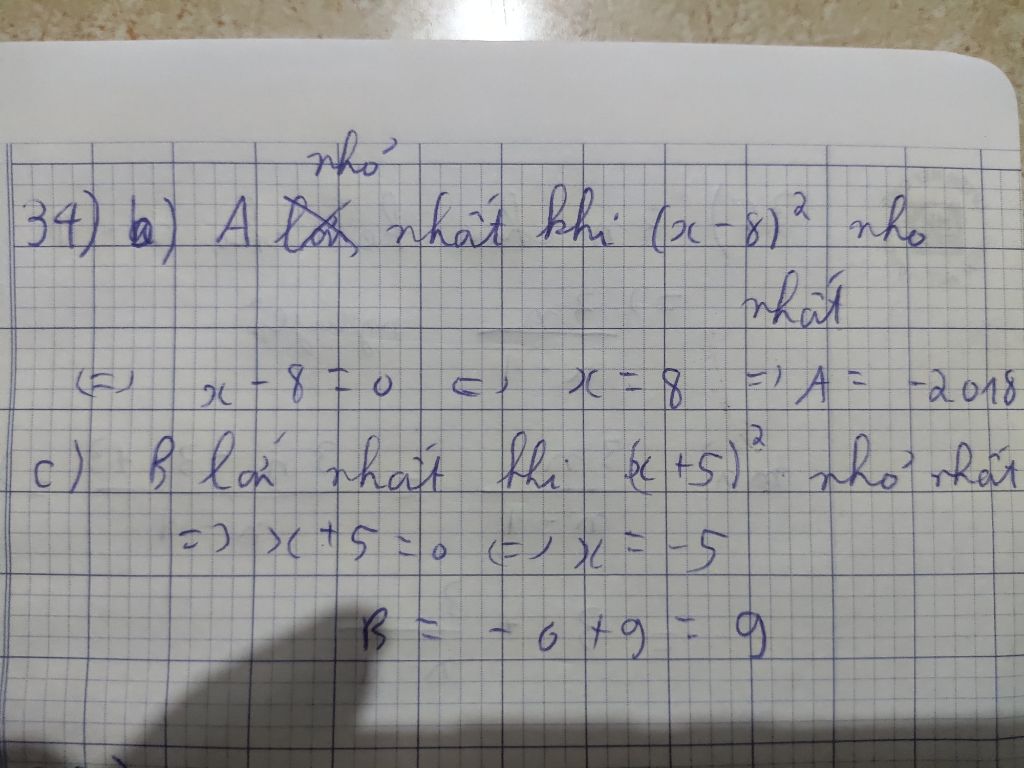 nhỏ
34) b) A lớn nhất khi (x - 8)² nhỏ
nhất
<=> x - 8 = 0 <=> x = 8 => A = -2018
c) B lớn nhất khi (x + 5)² nhỏ nhất
=> x + 5 = 0 <=> x = -5
B = - 0 + 9 = 9